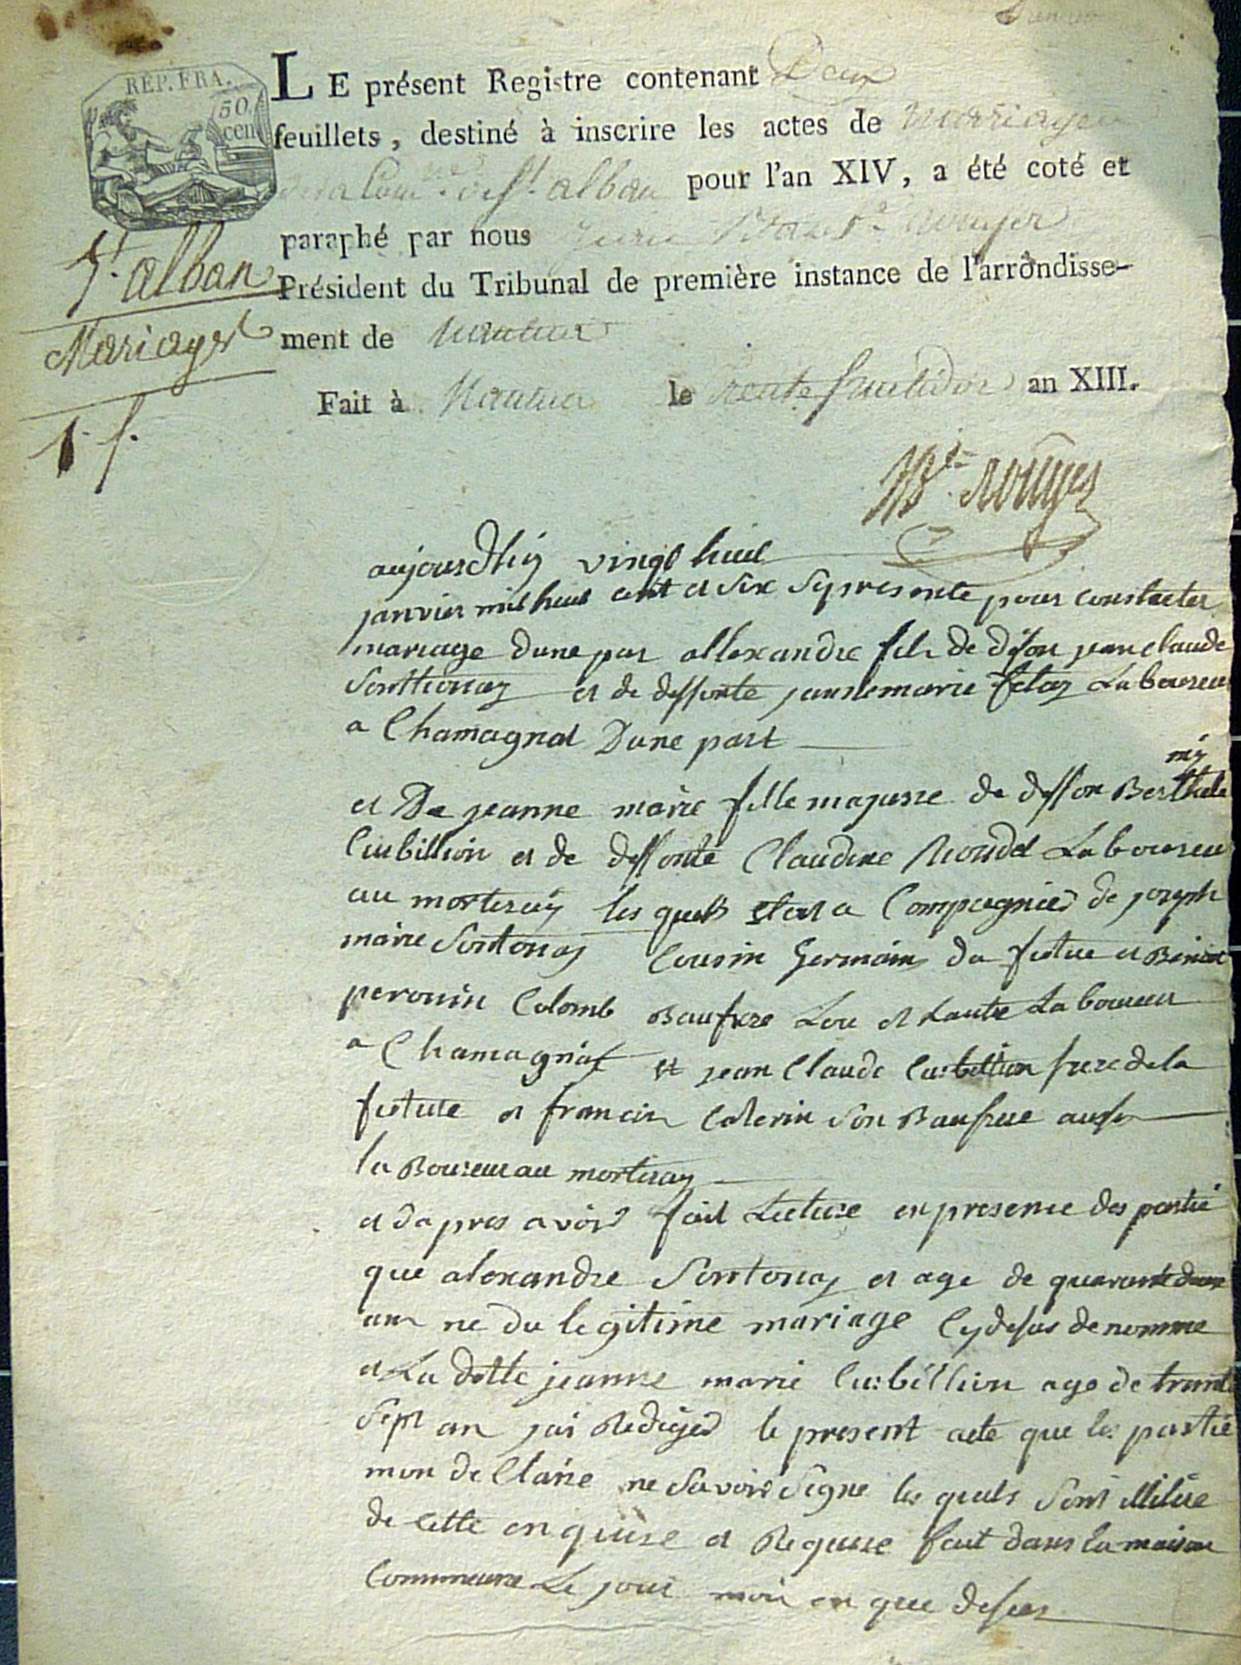 REP. FRA.
50
cen
LE présent Registre contenant Deux
feuillets, destiné à inscrire les actes de mariages
de la Com.ne de St. alban pour l'an XIV, a été coté et
paraphé par nous
Président du Tribunal de première instance de l'arrondisse-
ment de Nantua
Fait à Nantua le trente fructidor an XIII.
St. alban
Mariages
1. f.
aujourdhuy vingt huit
janvier mil huit cent et six sy presente pour constater
mariage dune par allexandre fils de defon jean claude
Sonthonay et de deffonte jeannemarie fetaz Laboureur
a Chamagnat Dune part
et De jeanne marie fille majusre de deffon Berthele
my
Curbillion et de deffonte Claudine Laboureur
au morteray les quels etar a Compagnied de joseph
marie Sontonay Cousin germain du futue et Benoit
perouin Colomb Baufrere Lou et Lautre Laboureur
a Chamagniat et jean Claude Curbillion frere de la
future et francois Caterin Son Baufrere aussi
la Boureur au morteray
et dapres avoir fait Lecture en presence des partie
que alexandre Sontonay et age de quarante deux
an ne du legitime mariage Cydesus denomme
et La ditte jeanne marie Curbillion age de trante
Sept an jai Rediged le present acte que les partie
mon de Clarée ne Savoir Signe les quels Sont illitere
de cette enquise et Requise fait dans la maison
Commeune Le jour mois en que desus